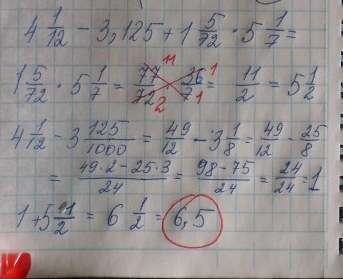 4 1/12 - 3,125 + 1 5/72 · 5 1/7 =
1 5/72 · 5 1/7 = 77/72 · 36/7 = 11/2 = 5 1/2
11 1
2 1
4 1/12 - 3 125/1000 = 49/12 - 3 1/8 = 49/12 - 25/8
= (49·2-25·3)/24 = (98-75)/24 = 24/24 = 1
1 + 5 1/2 = 6 1/2 = 6,5